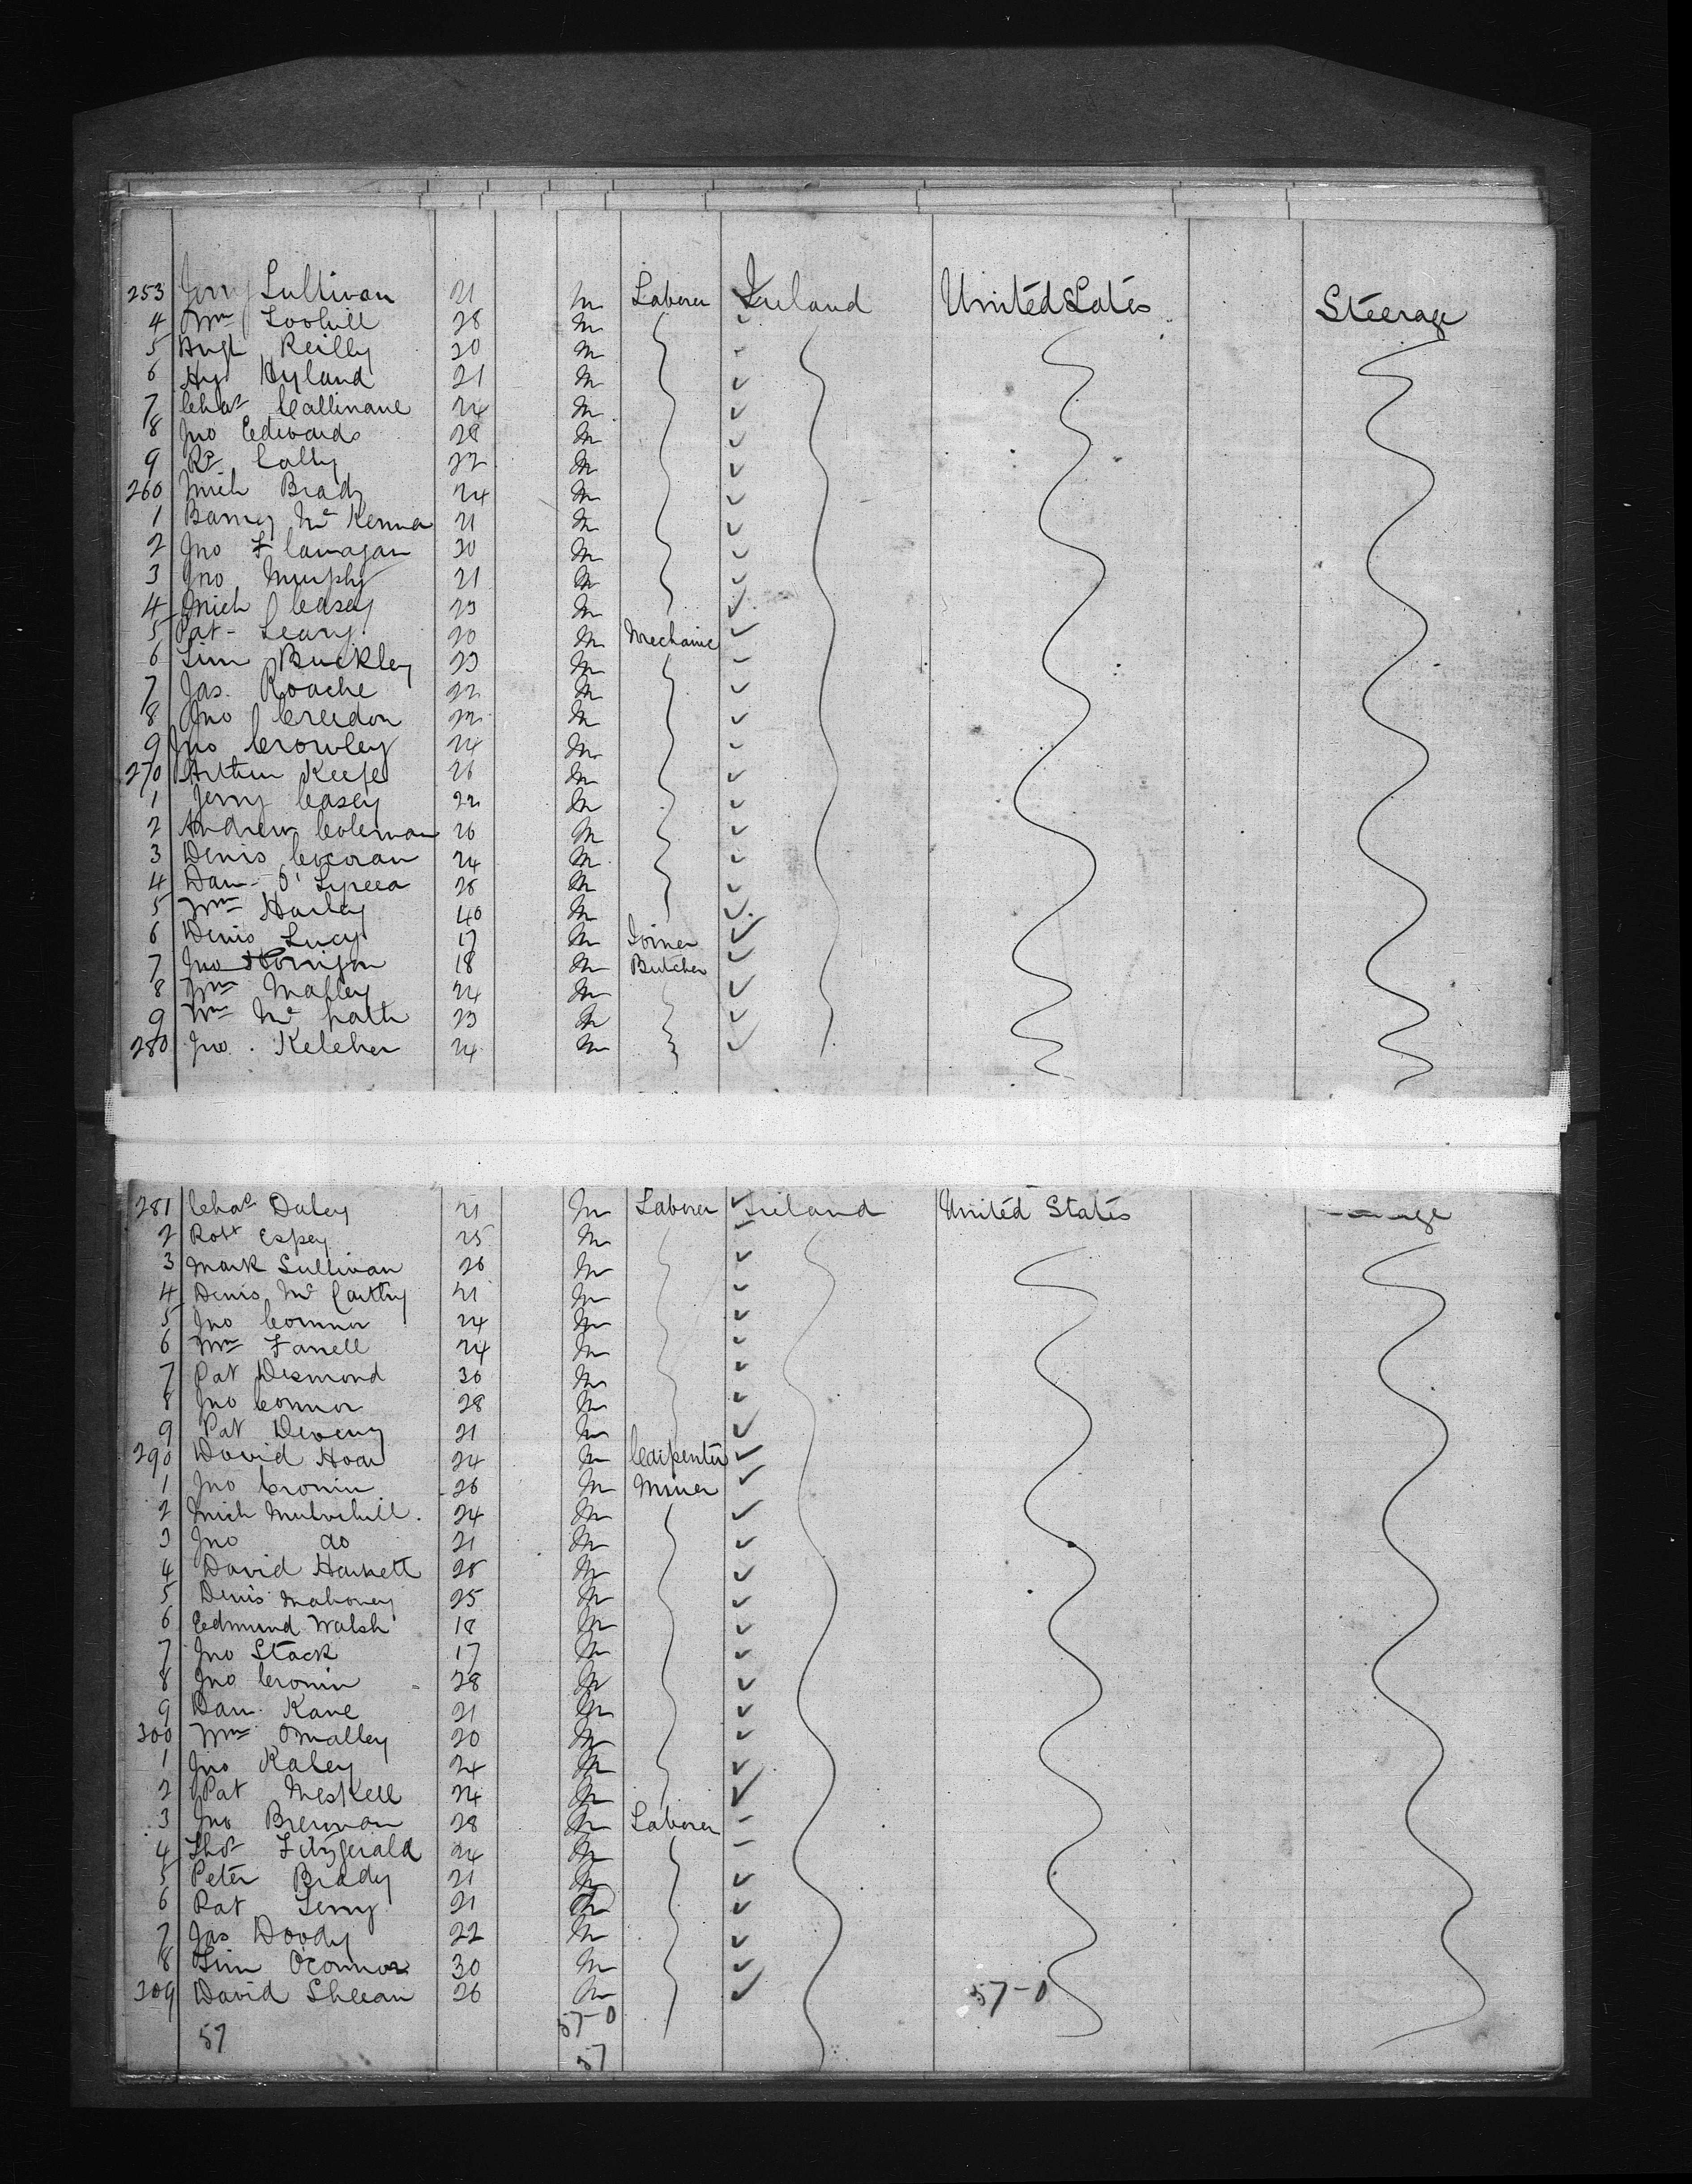 253 Jerry Sullivan 21 m Laborer Ireland United States Steerage
4 Wm Toohill 28 m
5 Augt Reilly 20 m
6 Hy Hyland 21 m
7 Chas Callinane 24 m
8 Jno Edwards 28 m
9 Rd Cally 22 m
260 Mich Brady 24 m
1 Barney McKenna 21 m
2 Jno Flanagan 20 m
3 Jno Murphy 21 m
4 Mich Casey 23 m
5 Pat Leary 20 m Mechanic
6 Tim Buckley 23 m
7 Jas. Roache 22 m
8 Jno Creedon 22 m
9 Jno Crowley 24 m
270 Arthur Keefe 26 m
1 Jerry Casey 22 m
2 Andrew Coleman 26 m
3 Denis Cocoran 24 m
4 Dan O' 28 m
5 Wm Harley 40 m
6 Denis Lucy 17 m Joiner
7 Jno Horrigan 18 m Butcher
8 Wm Malley 24 m
9 Wm Mc 23 m
280 Jno. Keleher 24 m
281 Chas Daley 21 m Laborer Ireland United States
2 Robt Espey 25 m
3 Mark Sullivan 26 m
4 Denis McCarthy 21 m
5 Jno Connor 24 m
6 Wm Farrell 24 m
7 Pat Desmond 30 m
8 Jno Connor 28 m
9 Pat Deveny 21 m
290 David Hoar 24 m Carpenter
1 Jno Cronin 26 m Miner
2 Mich Mulvihill. 24 m
3 Jno do 21 m
4 David Hackett 28 m
5 Denis Mahoney 25 m
6 Edmund Walsh 18 m
7 Jno Stack 17 m
8 Jno Cronin 28 m
9 Dan. Kane 21 m
300 Wm OMalley 20 m
1 Jno Raley 24 m
2 Pat Meskell 24 m
3 Jno Brennan 28 m Laborer
4 Thos Fitzgerald 24 m
5 Peter Brady 21 m
6 Pat 21 m
7 Jas Doody 22 m
8 Tim O'Connor 30 m
309 David Sheean 26 m 57-0
57 57-0
57